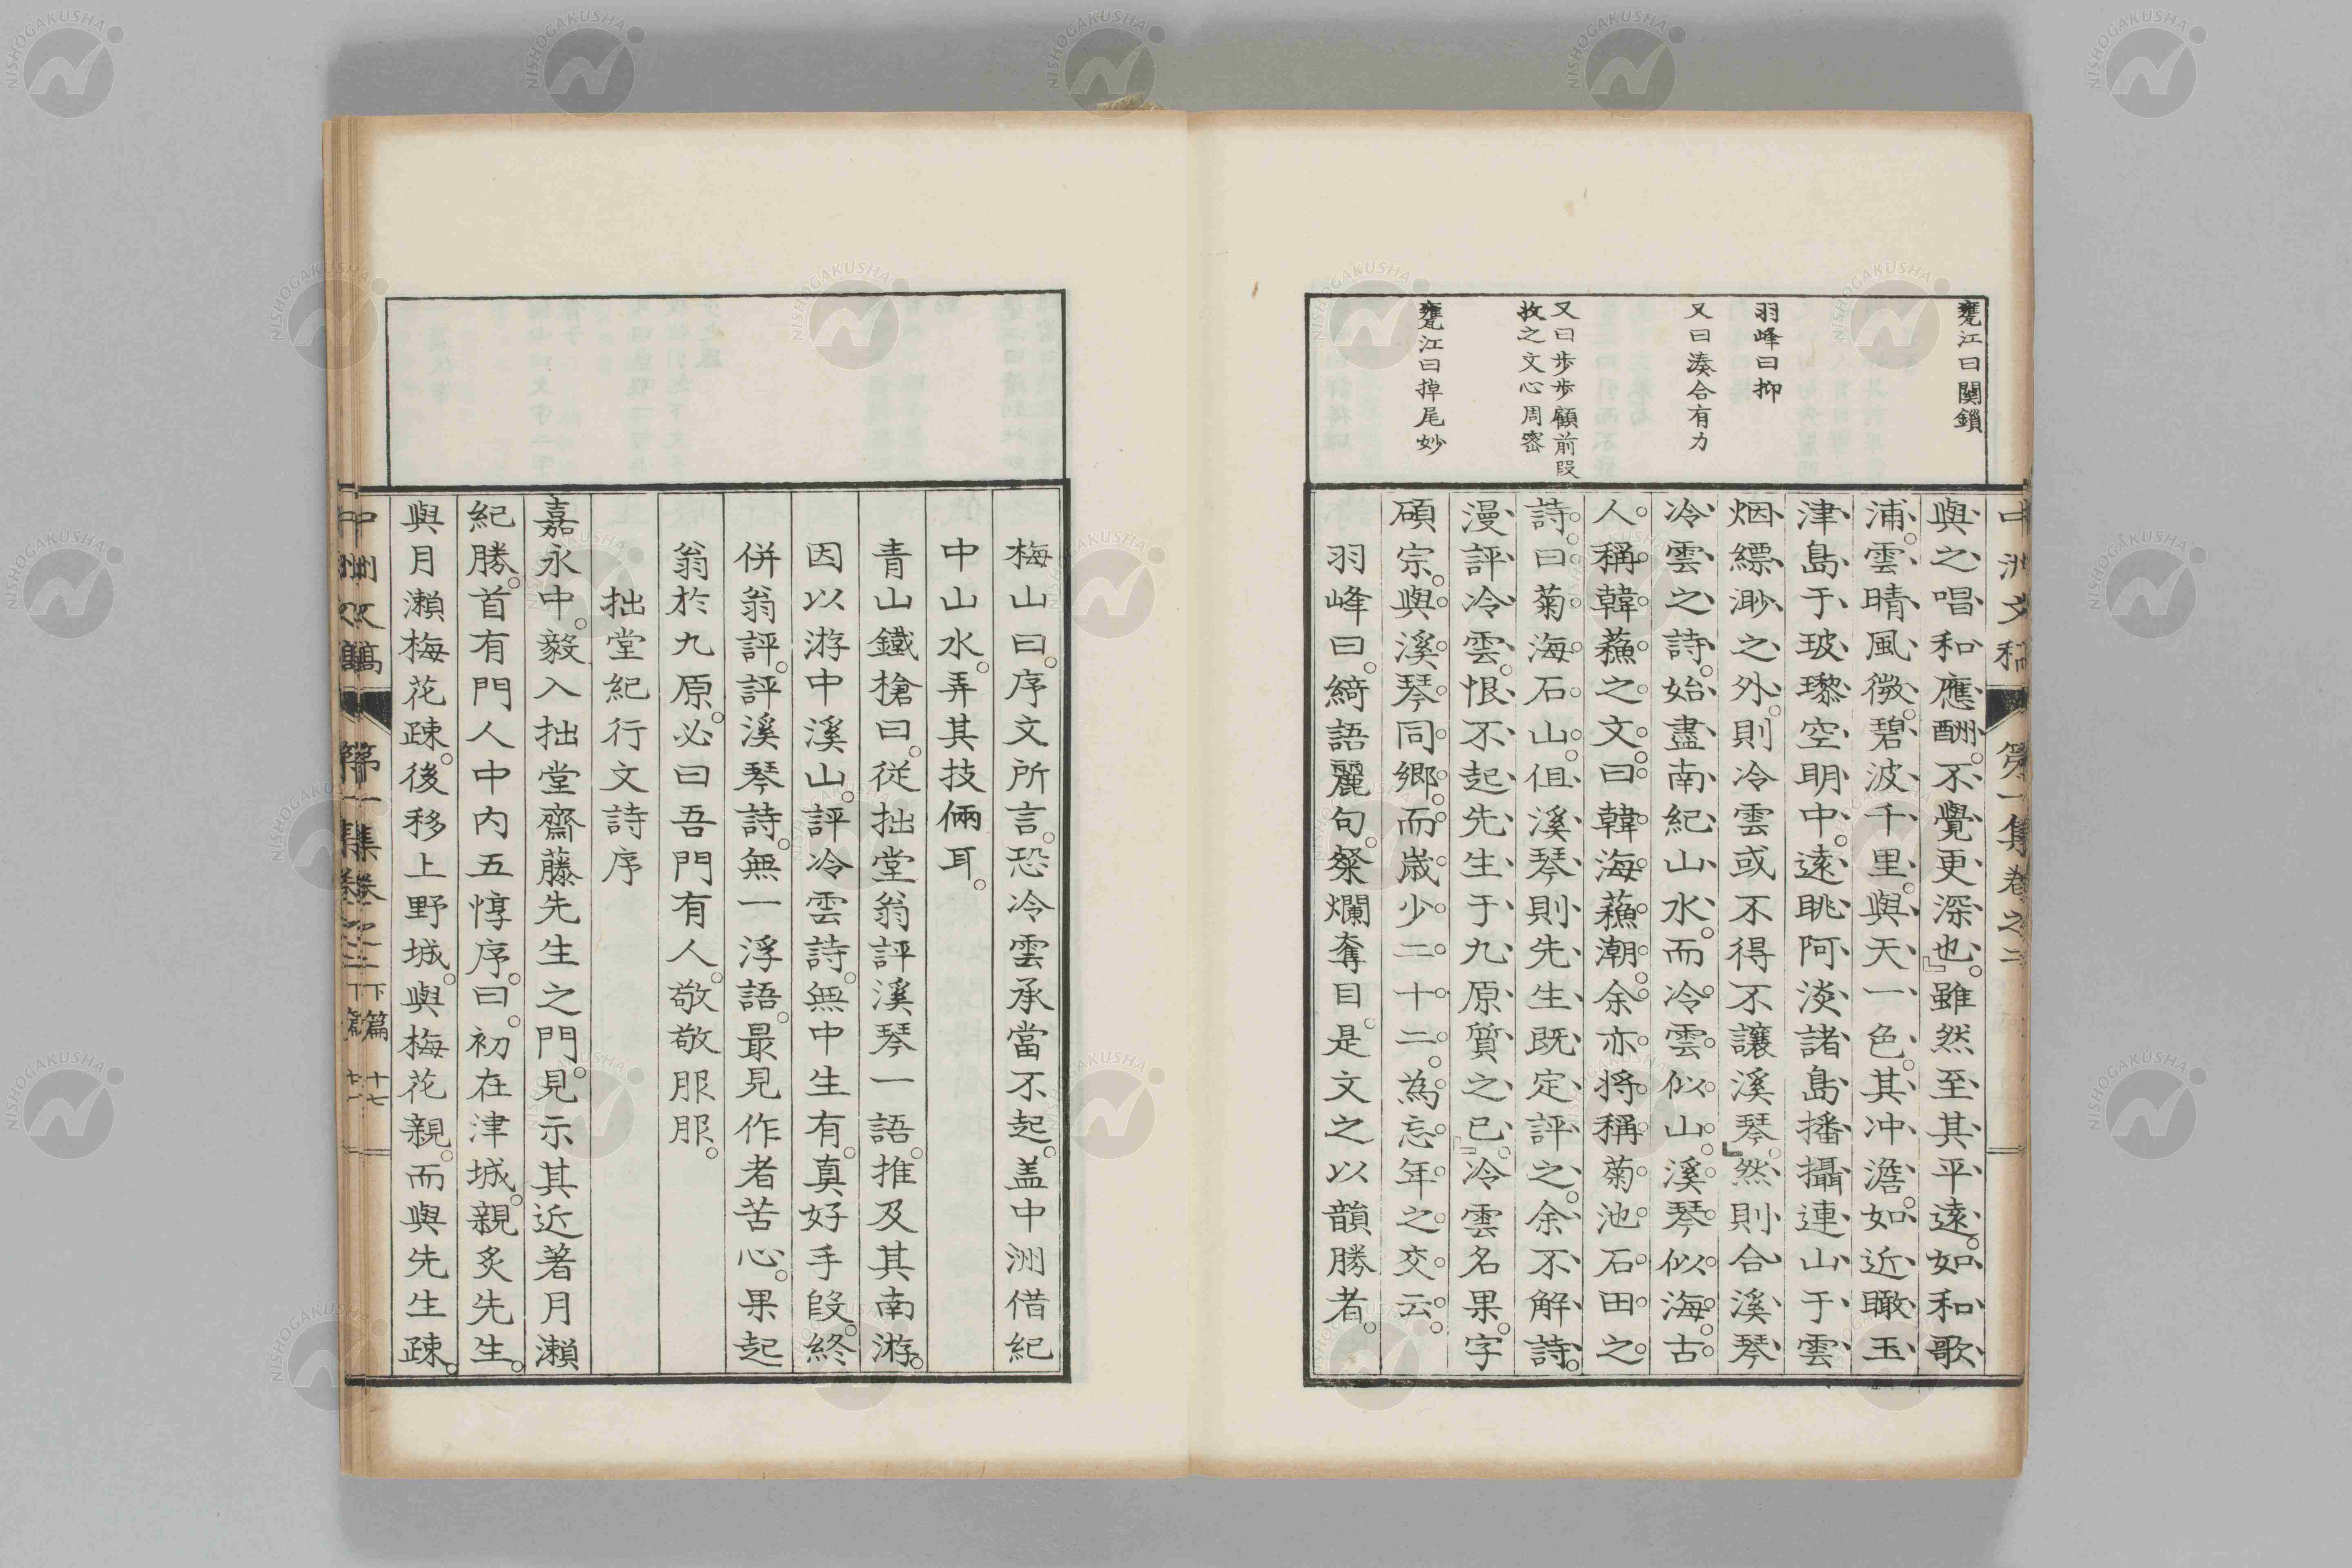 甕江曰關鎖
羽峰曰抑
又曰湊合有力
又曰步步顧前段
救之文心周密
甕江曰掉尾妙
中洲文稿 第一集卷之二
與之唱和應酬。不覺更深也。』雖然至其平遠。如和歌
浦。雲晴風微。碧波千里。與天一色。其冲澹。如近瞰玉
津島于玻瓈空明中。遠眺阿淡諸島播攝連山于雲
烟縹渺之外。則冷雲或不得不讓溪琴。』然則合溪琴
冷雲之詩。始盡南紀山水。而冷雲似山。溪琴似海。古
人稱韓蘇之文。曰韓海蘇潮。余亦將稱菊池石田之
詩。曰菊海石山。但溪琴則先生既定評之。余不解詩。
漫評冷雲。恨不起先生于九原質之已。』冷雲名果。字
碩宗。與溪琴同鄉。而歲少二十二。為忘年之交云。
羽峰曰。綺語麗句。粲爛奪目。是文之以韻勝者。
梅山曰。序文所言。恐冷雲承當不起。盖中洲借紀
中山水。弄其技倆耳。
青山鐵槍曰。從拙堂翁評溪琴一語。推及其南游。
因以游中溪山。評冷雲詩。無中生有。真好手段。終
併翁評。評溪琴詩。無一浮語。最見作者苦心。果起
翁於九原。必曰吾門有人。敬敬服服。
拙堂紀行文詩序
嘉永中。毅入拙堂齋藤先生之門。見示其近著月瀨
紀勝。首有門人中内五惇序。曰。初在津城。親炙先生。
與月瀨梅花疎。後移上野城。與梅花親。而與先生疎。
中洲文稿 第一集卷之二下篇 十七